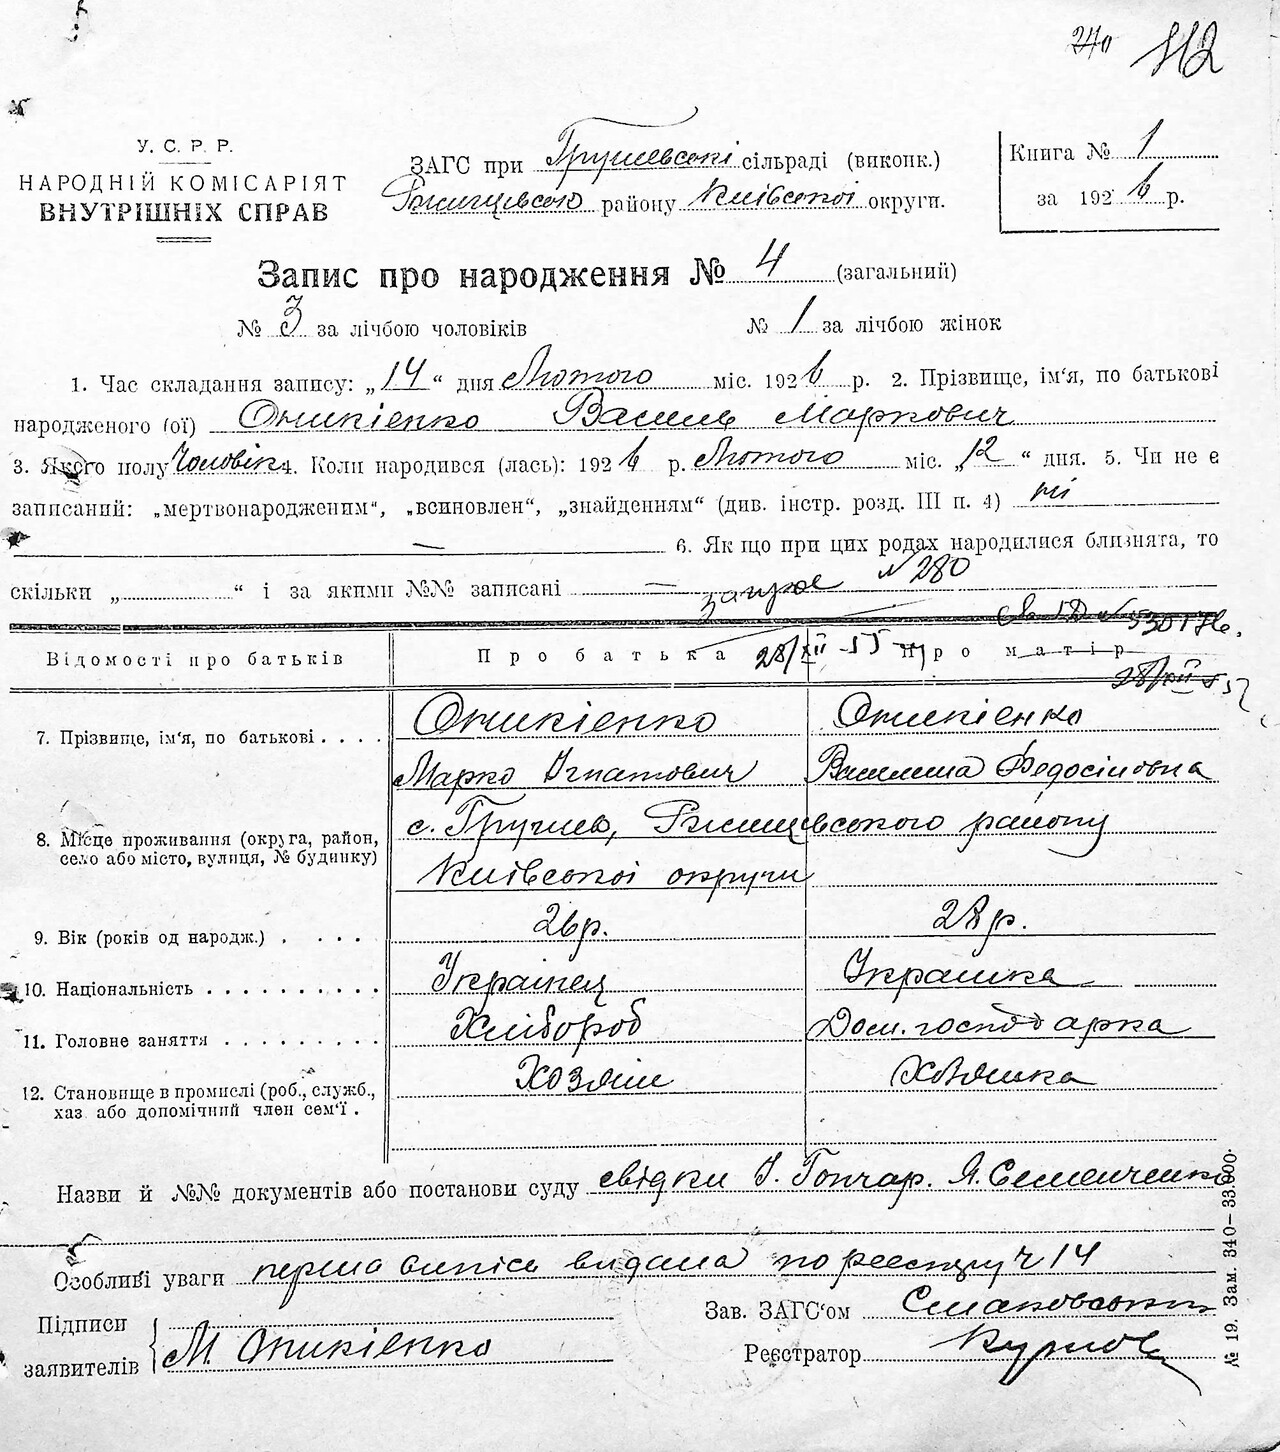 240 112
У. С. Р. Р.
НАРОДНІЙ КОМІСАРІЯТ
ВНУТРІШНІХ СПРАВ
ЗАГС при Грушевські сільраді (виконк.)
Ржищевсько району Київської округи.
Книга № 1
за 1926 р.
Запис про народження № 4 (загальний)
№ 3 за лічбою чоловіків № 1 за лічбою жінок
1. Час складання запису: „14“ дня Лютого міс. 1926 р. 2. Прізвище, ім'я, по батькові
народженого (ої) Оникієнко Василь Маркович
3. Якого полу Чоловік 4. Коли народився (лась): 1926 р. Лютого міс. „12“ дня. 5. Чи не є
записаний: „мертвонародженим“, „всиновлен“, „знайденням“ (див. інстр. розд. III п. 4) ні
— 6. Як що при цих родах народилися близнята, то
скільки „ “ і за якими №№ записані —
№ 280
28/XII-55
Відомості про батьків Про батька Про матір
7. Прізвище, ім'я, по батькові . . . . Оникієнко Оникієнко
Марко Ігнатович Василина Федосіївна
8. Місце проживання (округа, район,
село або місто, вулиця, № будинку) с. Грушев, Ржищевського району
Київської округи
9. Вік (років од народж.) . . . . 26р. 28р.
10. Національність . . . . . . . . . . Українец Українка
11. Головне заняття . . . . . . . . . Хлібороб Дом. господарка
12. Становище в промислі (роб., служб.,
хаз або допомічний член сем'ї . Хозяїн Хозяйка
Назви й №№ документів або постанови суду свідки І. Гончар. Я. Семенченко
Особливі уваги перша випись видана по реестру ч 14
Підписи
заявителів М. Оникієнко
Зав. ЗАГС'ом
Реєстратор
№ 19. Зам. 340—33.000.